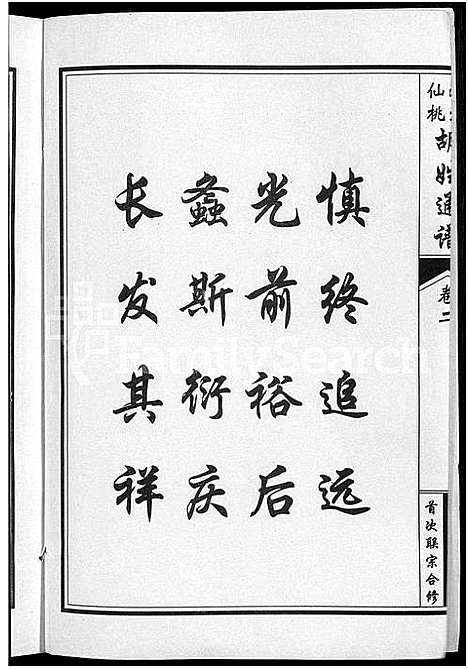 慎终追远
光前裕后
螽斯衍庆
长发其祥
仙桃
胡姓通谱
卷二
首次联宗合修
FamilySearch